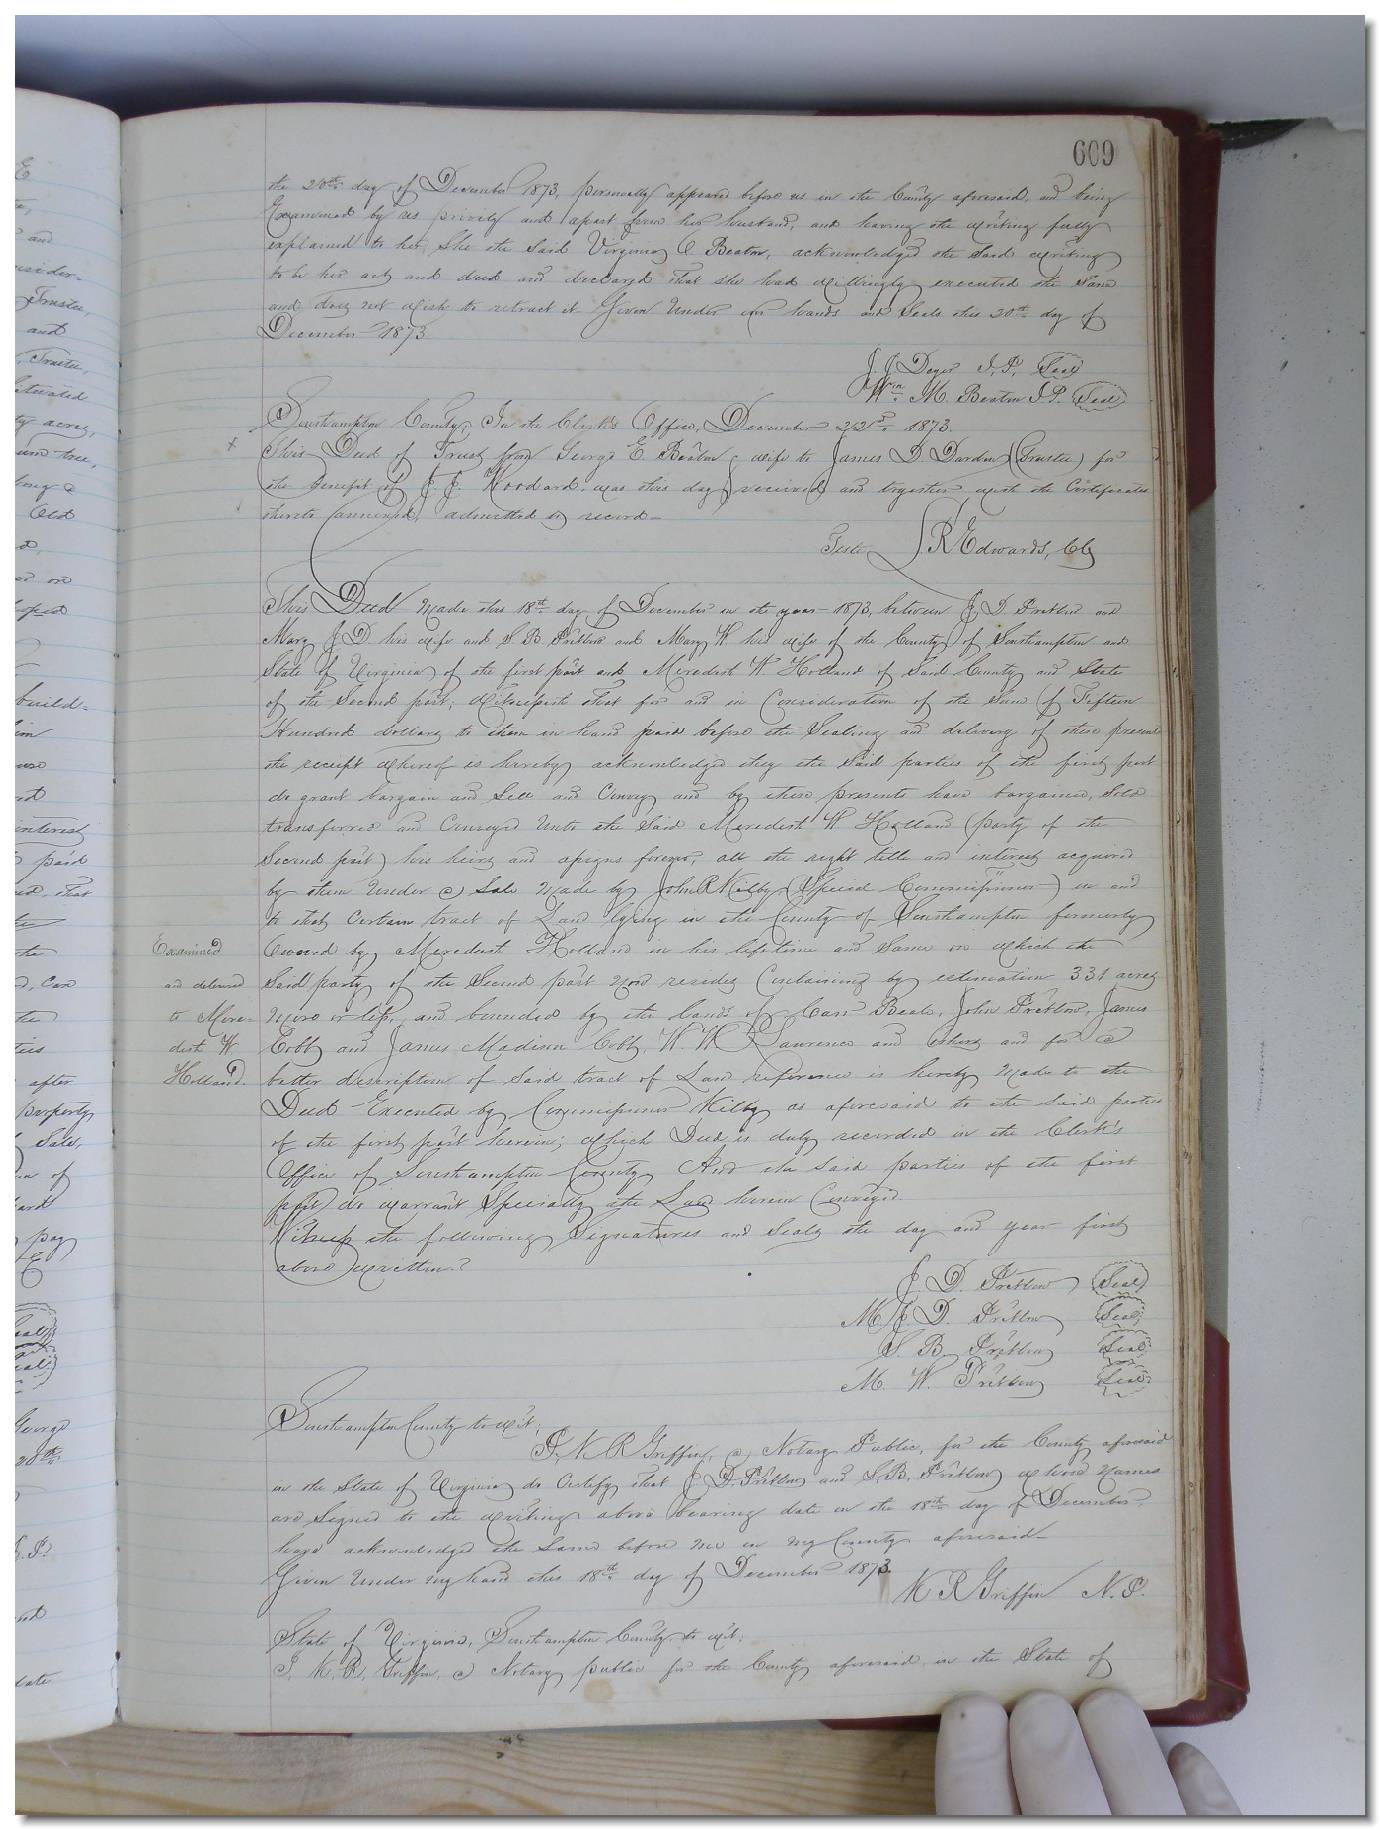 609
the 20th day of December 1873, personally appeared before us in the County aforesaid, and being
Examined by us privily and apart from her husband, and having the writing fully
explained to her, She the Said Virginia C Beaton, acknowledged the Said writing
to be her act and deed and declared that she had willingly executed the Same
and does not wish to retract it Given Under our hands and Seals this 20th day of
December 1873
J. J. J.P. Seal
Wm. M. Beaton J.P. Seal
Southampton County; In the Clerk's Office, December 1873.
This Deed of Trust from George E. Beaton & wife to James D Darden (Trustee) for
the benefit of J. J. Woodard. was this day received and together with the Certificates
thereto annexed, admitted to record—
Teste J R Edwards, Clk
This Deed Made this 18th day of December in the year 1873, between J. D. Pretlow and
Mary J D his wife and S. B Pretlow and Mary W his wife of the County of Southampton and
State of Virginia of the first part and Meredith W Holland of Said County and State
of the Second part; Witnesseth that for and in Consideration of the Sum of Fifteen
Hundred dollars to them in hand paid before the Sealing and delivery of these presents
the receipt whereof is hereby acknowledged they the Said parties of the first part
do grant bargain and Sell and Convey and by these presents have bargained, Sold
transferred and Conveyed Unto the Said Meredith W Holland (party of the
Second part) his heirs and assigns forever, all the right title and interest acquired
by them Under a Sale Made by John R Kilby (Special Commissioner) in and
to that Certain tract of Land lying in the County of Southampton formerly
Owned by Meredith Holland in his lifetime and Same on which the
Said party of the Second part Now resides Containing by estimation 331 acres
More or less, and bounded by the lands of Beale, John Pretlow, James
Cobb and James Madison Cobb, W. W Lawrence and others and for a
better description of Said tract of Land reference is hereby Made to the
Deed Executed by Commissioner Kilby as aforesaid to the Said parties
of the first part herein; which Deed is duly recorded in the Clerk's
Office of Southampton County And the Said parties of the first
part do warrant Specially the Land herein Conveyed.
Witness the following Signatures and Seals the day and year first
above written.
Examined
and delivered
to Mere-
dith W
Holland.
J. D. Pretlow Seal
M. J. D. Pretlow Seal
S. B. Pretlow Seal
M. W. Pretlow Seal
Southampton County to wit;
I, K R Griffin, a Notary Public, for the County aforesaid
in the State of Virginia do Certify that J. D. Pretlow and S. B. Pretlow whose Names
are Signed to the writing above bearing date on the 18th day of December,
have acknowledged the Same before Me in My County aforesaid—
Given Under My hand this 18th day of December 1873.
K R Griffin N. P.
State of Virginia, Southampton County to wit;
I, K. R. Griffin, a Notary public for the County aforesaid in the State of